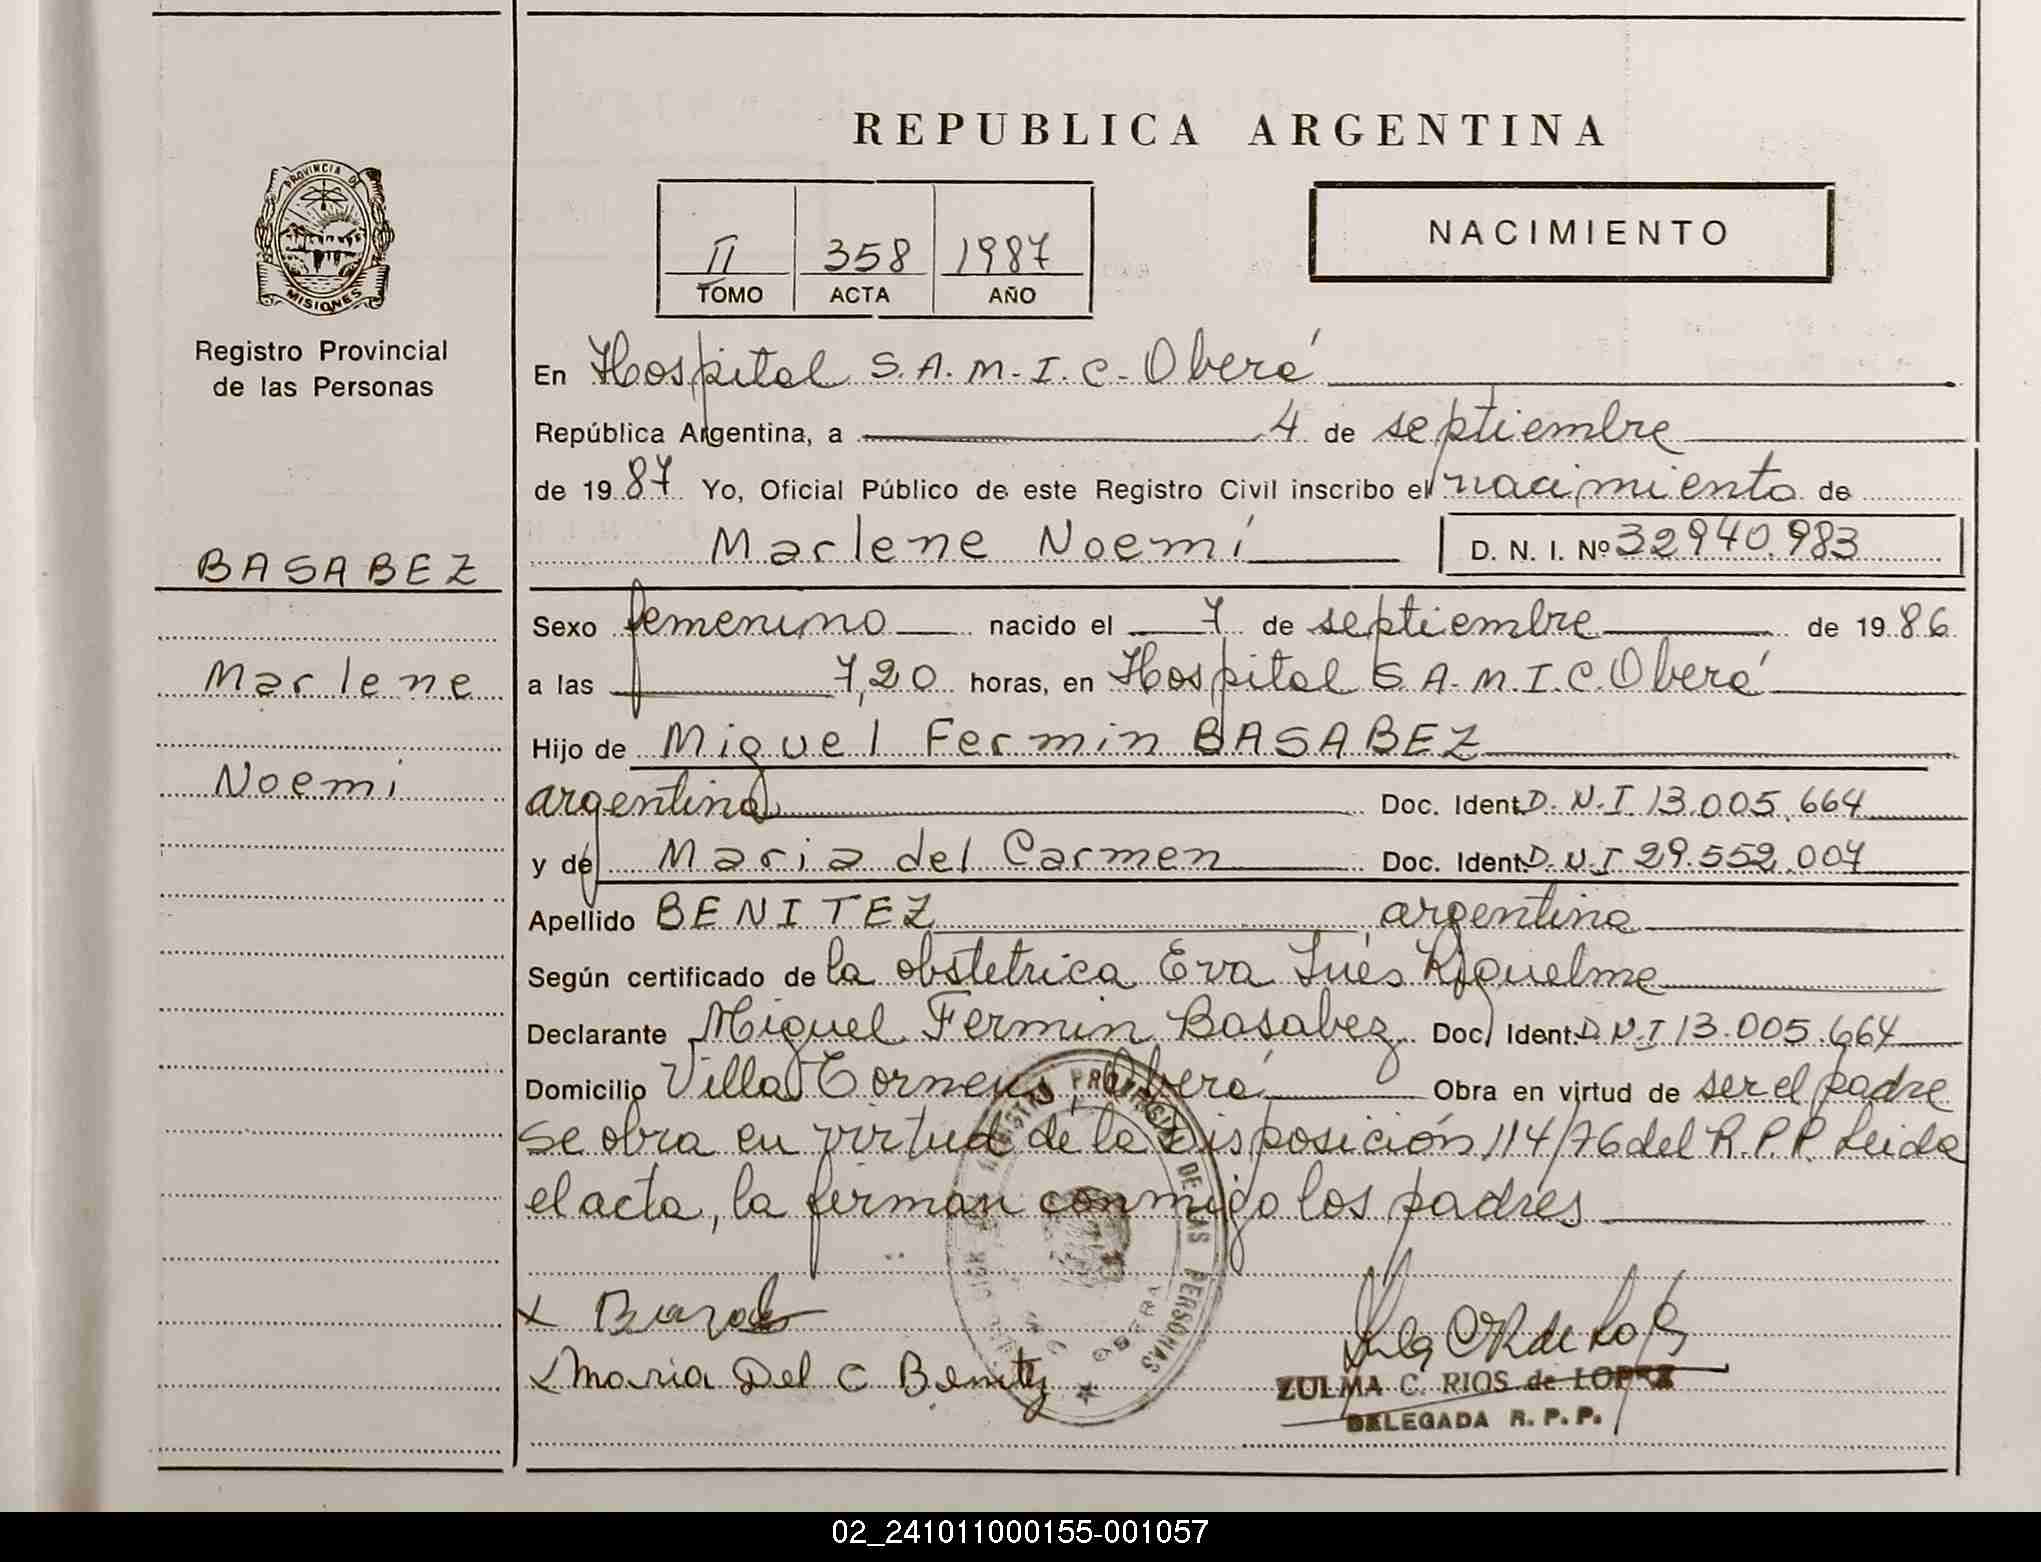 REPUBLICA ARGENTINA
PROVINCIA DE
MISIONES
Registro Provincial
de las Personas
BASABEZ
Marlene
Noemi
II 358 1987
TOMO ACTA AÑO
NACIMIENTO
En Hospital S.A.M.I.C. Oberá
República Argentina, a 4 de septiembre
de 1987 Yo, Oficial Público de este Registro Civil inscribo el nacimiento de
Marlene Noemí D. N. I. Nº 32940.983
Sexo femenino nacido el 7 de septiembre de 1986
a las 7,20 horas, en Hospital S.A.M.I.C. Oberá
Hijo de Miguel Fermin BASABEZ
argentino Doc. Ident. D.N.I 13.005.664
y de Maria del Carmen Doc. Ident. D.N.I 29.552.007
Apellido BENITEZ argentina
Según certificado de la obstetrica Eva Inés Riquelme
Declarante Miguel Fermin Basabez Doc. Ident. D.N.I 13.005.664
Domicilio Villa Oberá Obra en virtud de ser el padre
Se obra en virtud de la disposición 114/76 del R.P.P. Leida
el acta, la firman conmigo los padres
REGISTRO PROVINCIAL DE LAS PERSONAS
OBERA
x
x Maria Del C Benitez
ZULMA C. RIOS de LOPEZ
DELEGADA R. P. P.
02_241011000155-001057